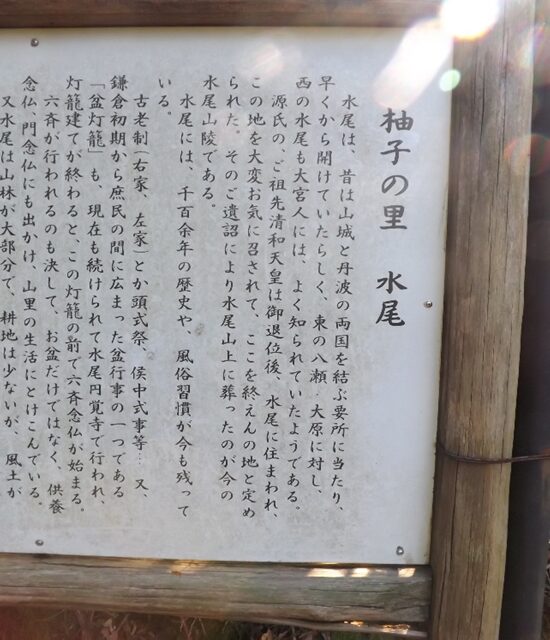 柚子の里 水尾
水尾は、昔は山城と丹波の両国を結ぶ要所に当たり、
早くから開けていたらしく、東の八瀬、大原に対し、
西の水尾も大宮人には、よく知られていたようである。
源氏の、ご祖先清和天皇は御退位後、水尾に住まわれ、
この地を大変お気に召されて、ここを終えんの地と定め
られた。そのご遺詔により水尾山上に葬ったのが今の
水尾山陵である。
水尾には、千百余年の歴史や、風俗習慣が今も残って
いる。
古老制(右家、左家)とか頭式祭、侯中式事等…又、
鎌倉初期から庶民の間に広まった盆行事の一つである
「盆灯籠」も、現在も続けられて水尾円覚寺で行われ、
灯籠建てが終わると、この灯籠の前で六斉念仏が始まる。
六斉が行われるのも決して、お盆だけではなく、供養
念仏、門念仏にも出かけ、山里の生活にとけこんでいる。
又水尾は山林が大部分で、耕地は少ないが、風土が